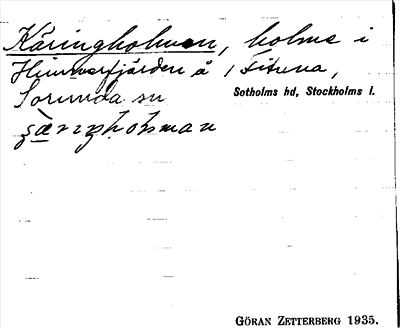 Käringholmen, holme i
Himmerfjärden å Fituna,
Sorunda sn
Sotholms hd, Stockholms l.
GÖRAN ZETTERBERG 1935.